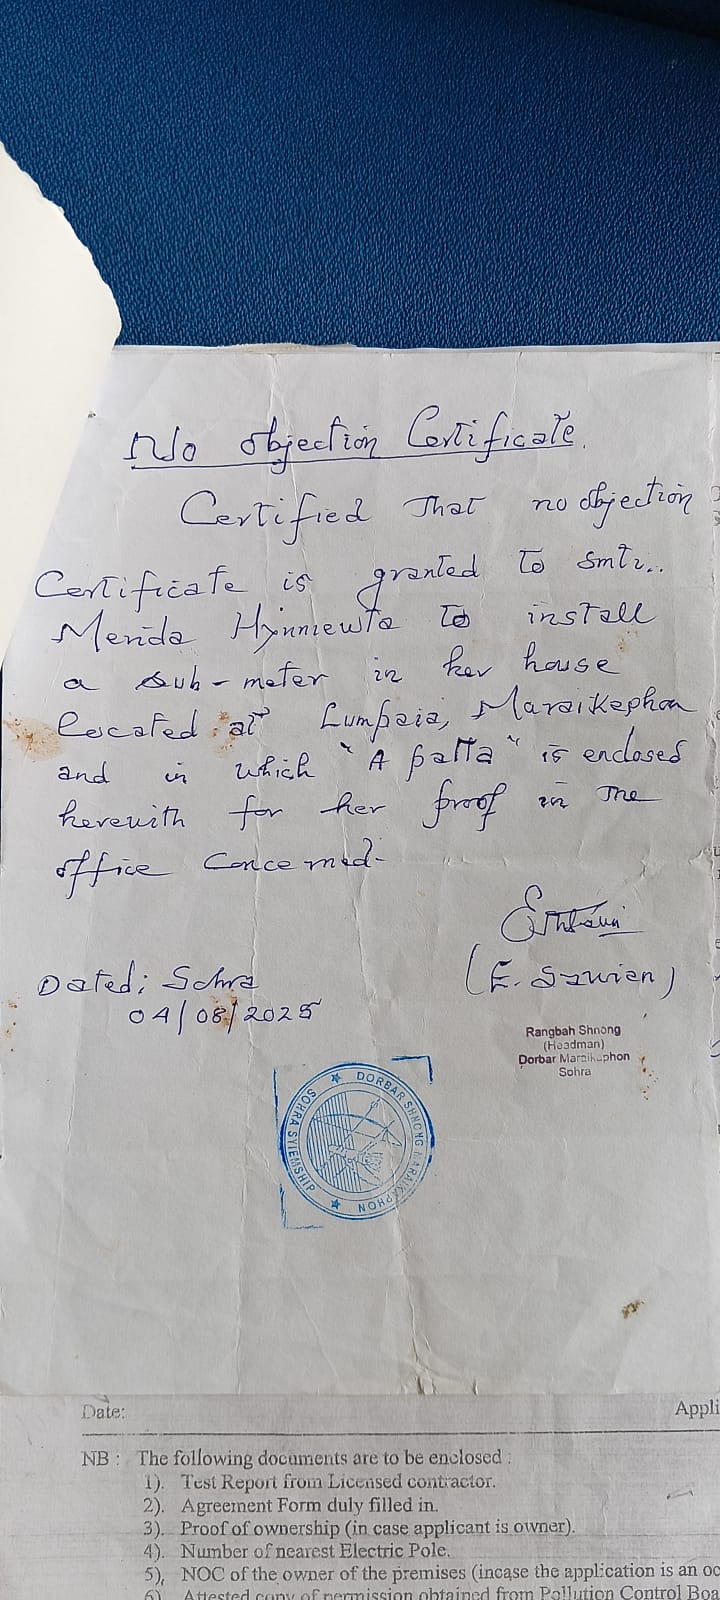 No objection Certificate.
Certified That no objection
Certificate is granted to Smti..
Merida Hynniewta to install
a Sub-meter in her house
located at Lumpaia, Maraikaphon
and in which "A patta" is enclosed
herewith for her proof in The
office Concerned-
(E. Sawian)
Dated: Sohra
04/08/2025
Rangbah Shnong
(Headman)
Dorbar Maraikaphon
Sohra
DORBAR SHNONG MARAIKAPHON
SOHRA SYIEMSHIP
Date: Appli
NB : The following documents are to be enclosed :
1). Test Report from Licensed contractor.
2). Agreement Form duly filled in.
3). Proof of ownership (in case applicant is owner).
4). Number of nearest Electric Pole.
5), NOC of the owner of the premises (incase the application is an oc
6) Attested copy of permission obtained from Pollution Control Boa